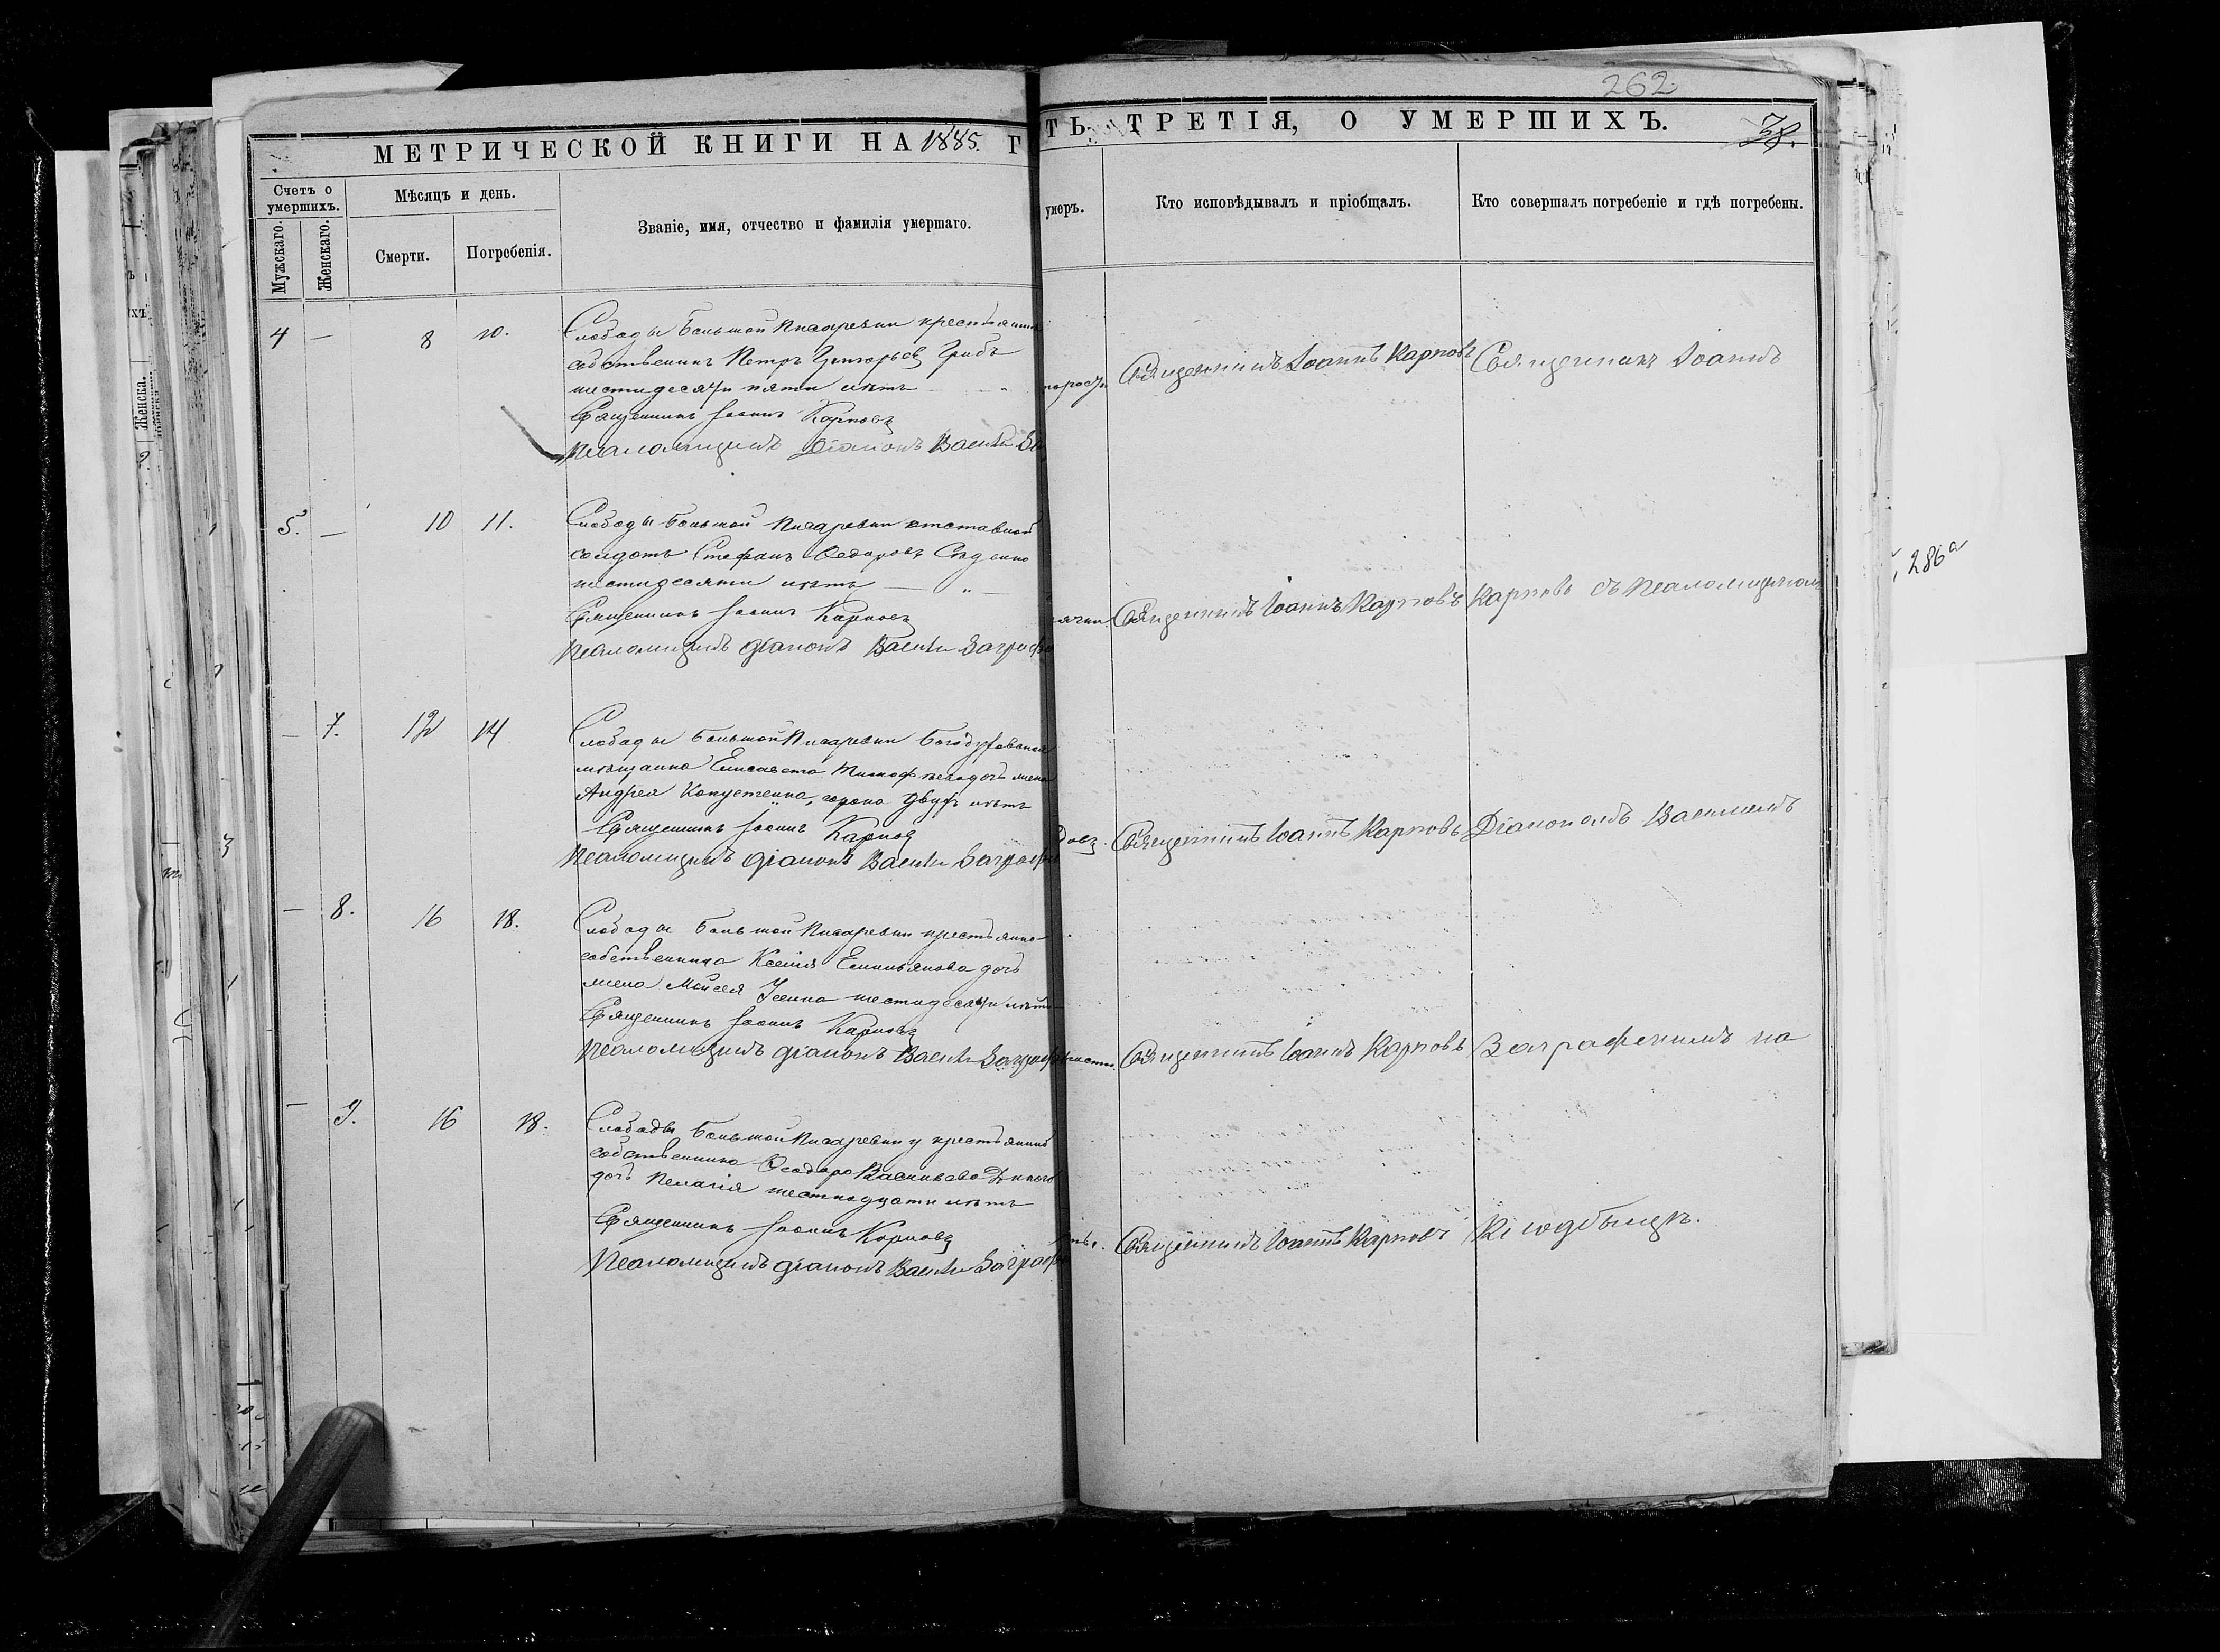 262.
МЕТРИЧЕСКОЙ КНИГИ НА 1885. Г
ТЬ ТРЕТІЯ, О УМЕРШИХЪ.
Счетъ о умершихъ.
Мужскаго.
Женскаго.
Мѣсяцъ и день.
Смерти.
Погребенія.
Званіе, имя, отчество и фамилія умершаго.
умеръ.
Кто исповѣдывалъ и пріобщалъ.
Кто совершалъ погребеніе и гдѣ погребены.
4 — 8 10.
Слободы Большой Писаревки крестьянинъ
собственникъ Петръ Григорьевъ Грибъ
шестидесяти пяти лѣтъ
Священникъ Іоаннъ Карповъ
Псаломщикъ Діаконъ Васил
Священникъ Іоаннъ Карповъ
Священникъ Іоаннъ
5. — 10 11.
Слободы Большой Писаревки отставной
солдатъ Стефанъ Ѳедоровъ
шестидесяти лѣтъ — „ —
Священникъ Іоаннъ Карповъ
Псаломщикъ Діаконъ Васил Заграф
Священникъ Іоаннъ Карповъ
Карповъ съ Псаломщикомъ
286а
— 7. 12 14
Слободы Большой Писаревки Богодуховская
мѣщанка Елисавета Тимофеева дочь жена
Андрея Капустенка, сорока двухъ лѣтъ
Священникъ Іоаннъ Карповъ
Псаломщикъ Діаконъ Васил Заграф
Священникъ Іоаннъ Карповъ
Діакономъ Василіемъ
— 8. 16 18.
Слободы Большой Писаревки крестьянка
собственника Ксенія Емельянова дочь
жена Моисея Усенка шестидесяти лѣтъ
Священникъ Іоаннъ Карповъ
Псаломщикъ Діаконъ Васил Заграф
Священникъ Іоаннъ Карповъ
Заграфскимъ на
— 9. 16 18.
Слободы Большой Писаревки у крестьянина
собственника Ѳеодора Васильева
дочь Пелагія шестнадцати лѣтъ
Священникъ Іоаннъ Карповъ
Псаломщикъ Діаконъ Васил Заграф
Священникъ Іоаннъ Карповъ
Кладбищѣ.